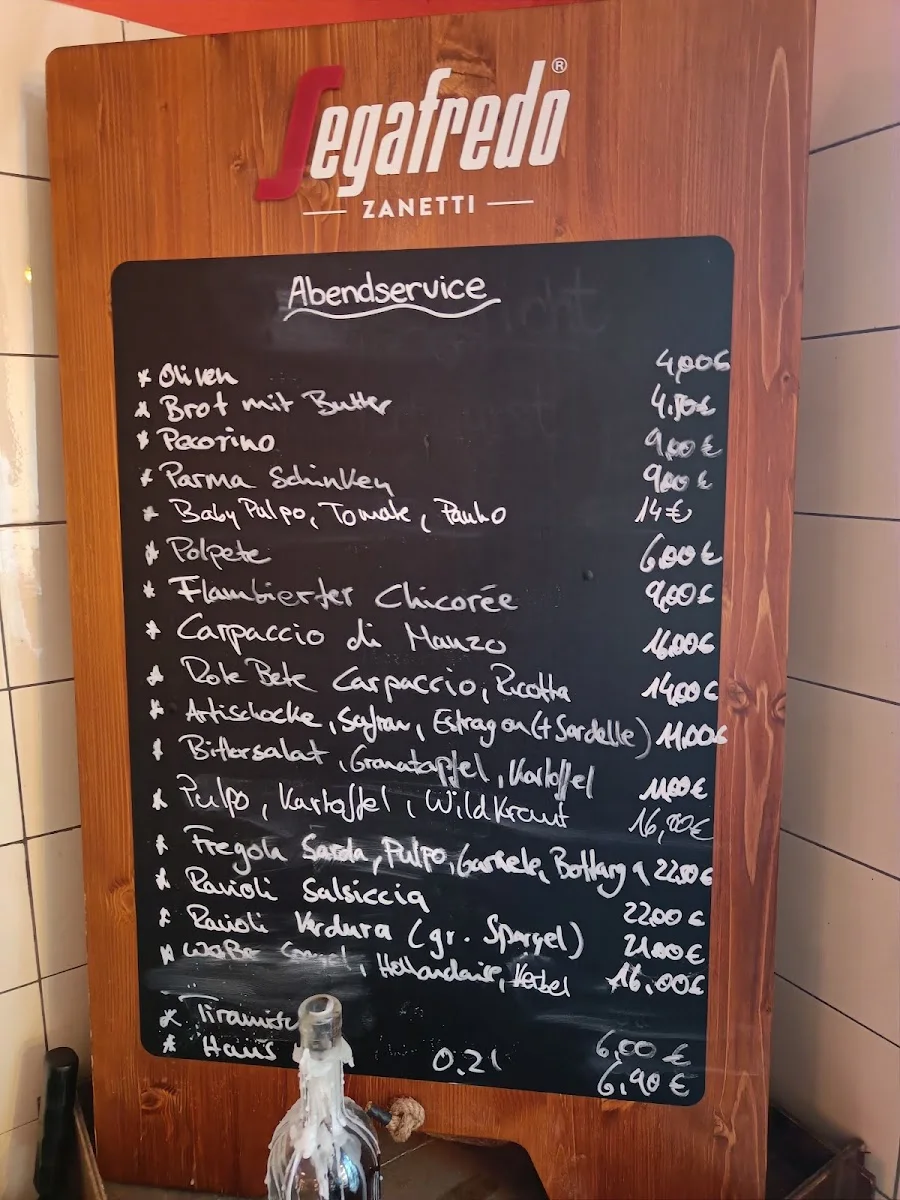 Segafredo®
ZANETTI
Abendservice
* Oliven 4,00€
* Brot mit Butter 4,50€
* Pecorino 9,00€
* Parma Schinken 9,00€
* Baby Pulpo, Tomate, Panko 14€
* Polpete 6,00€
* Flambierter Chicorée 9,00€
* Carpaccio di Manzo 16,00€
* Rote Bete Carpaccio, Ricotta 14,00€
* Artischocke, Safran, Estragon (+ Sardelle) 11,00€
* Bittersalat, Granatapfel, Kartoffel 11,00€
* Pulpo, Kartoffel, Wildkraut 16,20€
* Fregola Sarda, Pulpo, Garnele, Bottarga 22,50€
* Ravioli Salsiccia 22,00€
* Ravioli Verdura (gr. Spargel) 21,00€
* Weißer Spargel, Hollandaise, Kerbel 16,00€
* Tiramisu 6,00€
* Haus 0.2l 6,90€